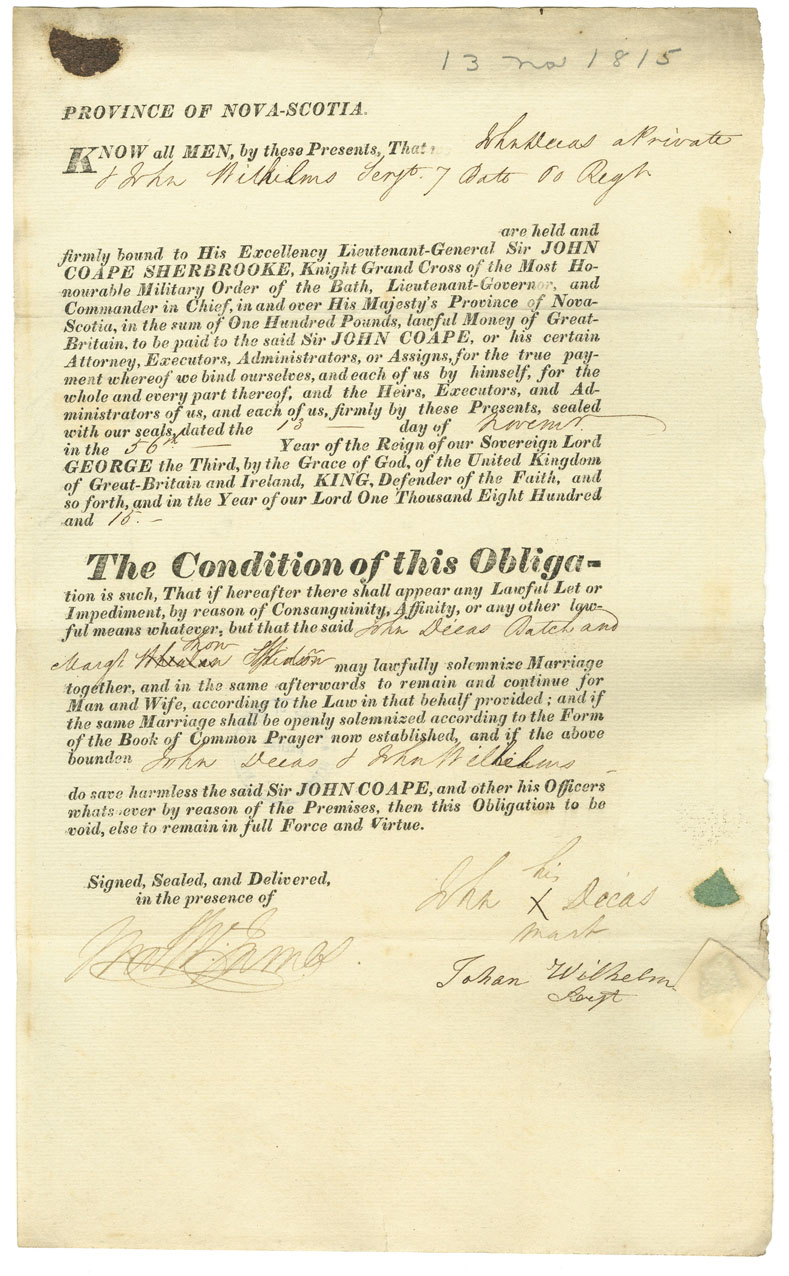 13 No 1815
PROVINCE OF NOVA-SCOTIA.
KNOW all MEN, by these Presents, That John Decas a Private
& John Wilhelms Sergt. 7 Batt 60 Regt
are held and
firmly bound to His Excellency Lieutenant-General Sir JOHN
COAPE SHERBROOKE, Knight Grand Cross of the Most Ho-
nourable Military Order of the Bath, Lieutenant-Governor, and
Commander in Chief, in and over His Majesty's Province of Nova-
Scotia, in the sum of One Hundred Pounds, lawful Money of Great-
Britain, to be paid to the said Sir JOHN COAPE, or his certain
Attorney, Executors, Administrators, or Assigns, for the true pay-
ment whereof we bind ourselves, and each of us by himself, for the
whole and every part thereof, and the Heirs, Executors, and Ad-
ministrators of us, and each of us, firmly by these Presents, sealed
with our seals, dated the 13 day of Novemr.
in the 56th Year of the Reign of our Sovereign Lord
GEORGE the Third, by the Grace of God, of the United Kingdom
of Great-Britain and Ireland, KING, Defender of the Faith, and
so forth, and in the Year of our Lord One Thousand Eight Hundred
and 15.-
The Condition of this Obliga-
tion is such, That if hereafter there shall appear any Lawful Let or
Impediment, by reason of Consanguinity, Affinity, or any other law-
ful means whatever; but that the said John Decas Batch and
Margt may lawfully solemnize Marriage
together, and in the same afterwards to remain and continue for
Man and Wife, according to the Law in that behalf provided; and if
the same Marriage shall be openly solemnized according to the Form
of the Book of Common Prayer now established, and if the above
bounden John Decas & John Wilhelms
do save harmless the said Sir JOHN COAPE, and other his Officers
whatsoever by reason of the Premises, then this Obligation to be
void, else to remain in full Force and Virtue.
Signed, Sealed, and Delivered,
in the presence of
his
John X Decas
mark
James
Johan Wilhelm
Sergt